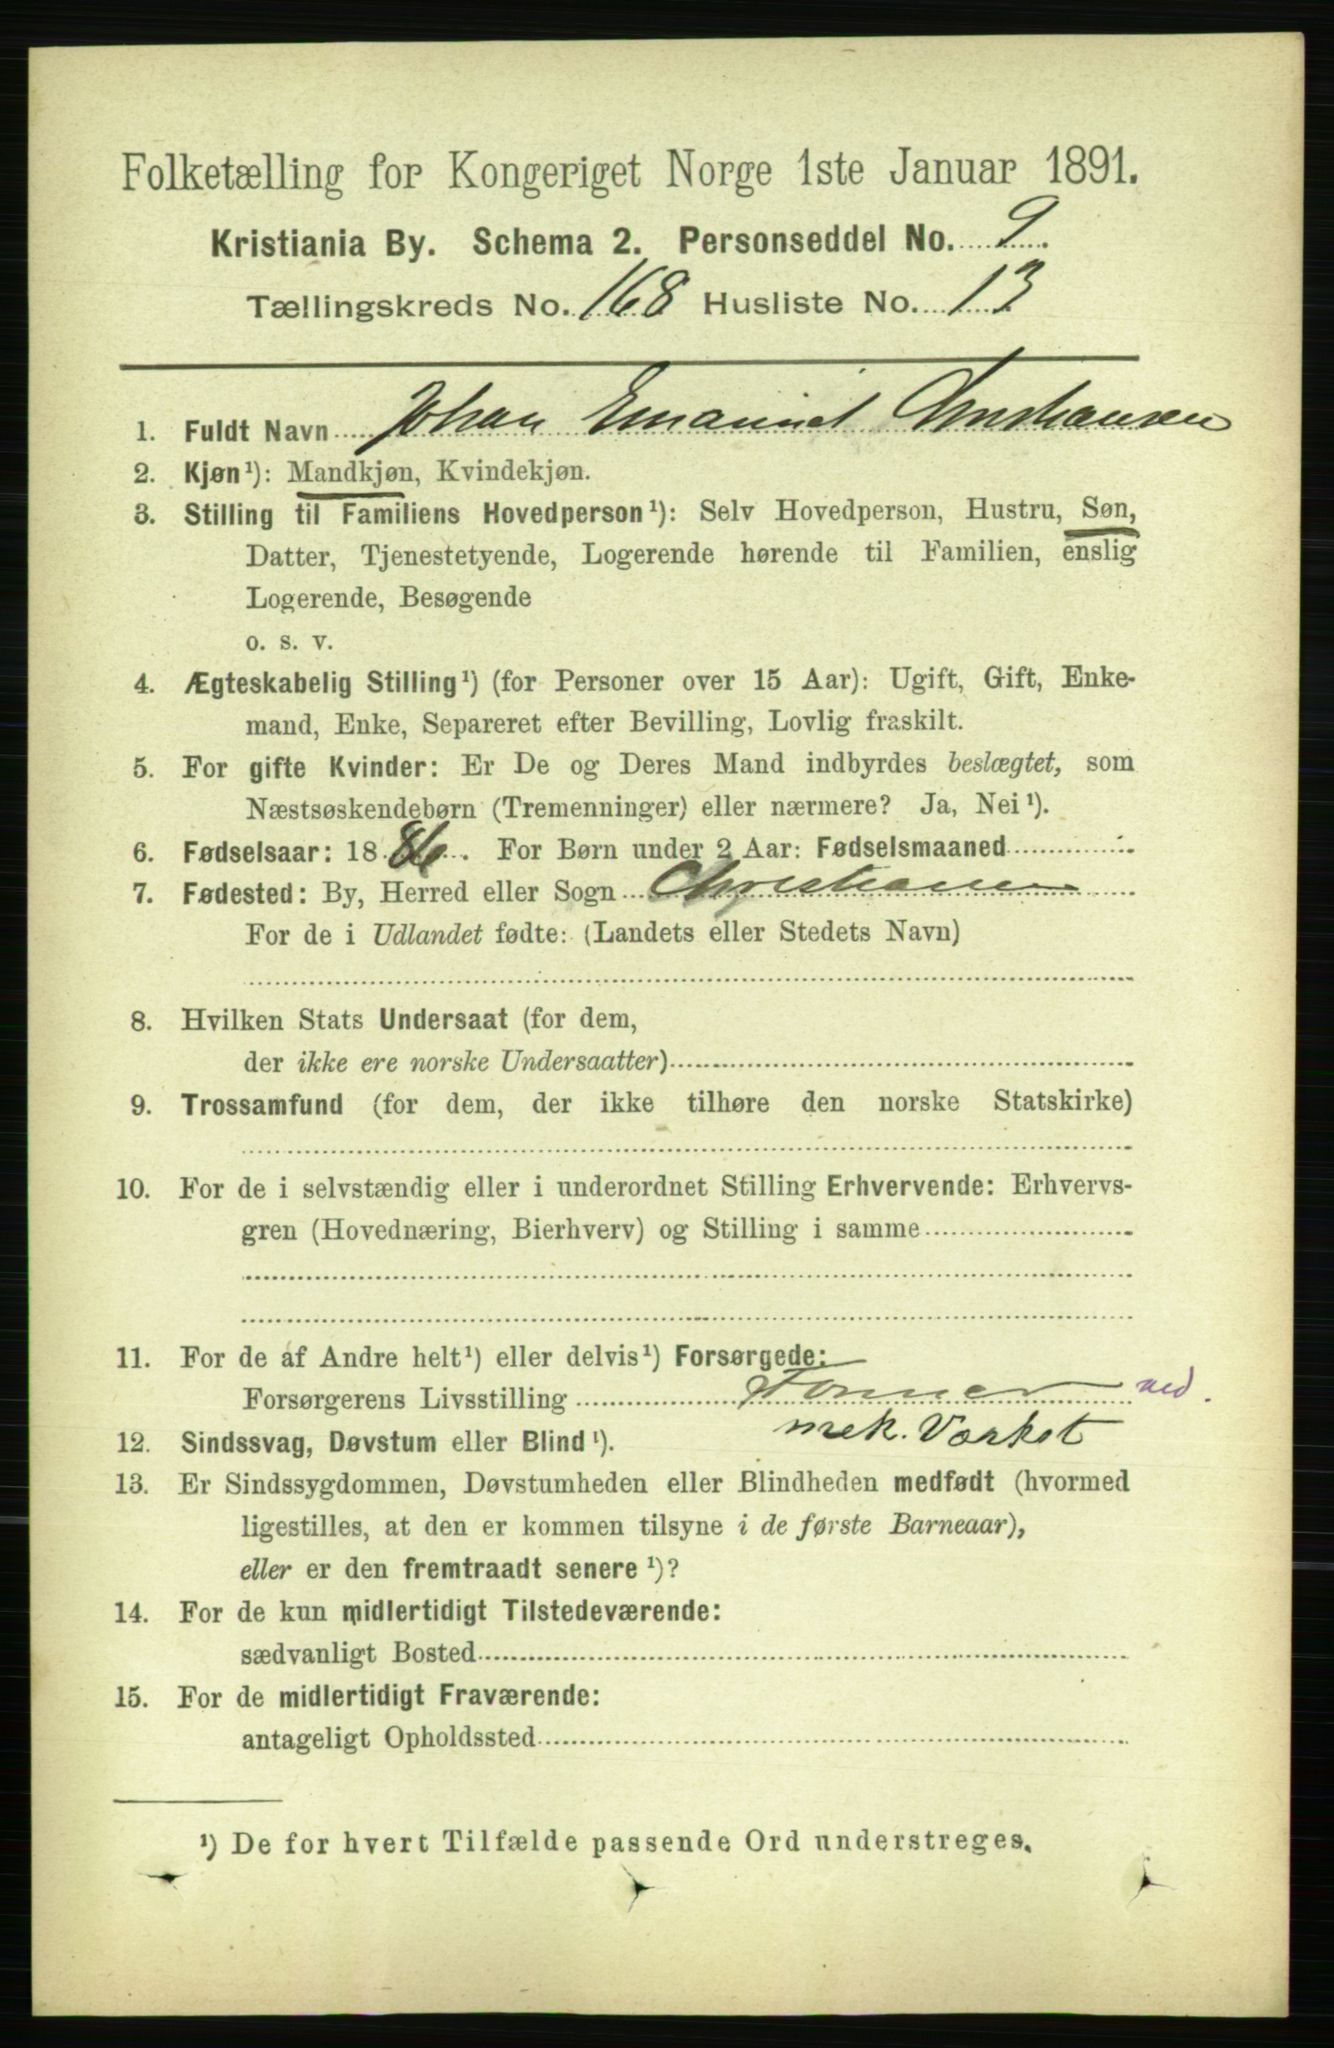 Folketælling for Kongeriget Norge 1ste Januar 1891.
Kristiania By. Schema 2. Personseddel No. 9
Tællingskreds No. 168 Husliste No. 13
1. Fuldt Navn Johan Emanuel
2. Kjøn¹): Mandkjøn, Kvindekjøn.
3. Stilling til Familiens Hovedperson¹): Selv Hovedperson, Hustru, Søn,
Datter, Tjenestetyende, Logerende hørende til Familien, enslig
Logerende, Besøgende
o. s. v.
4. Ægteskabelig Stilling¹) (for Personer over 15 Aar): Ugift, Gift, Enke-
mand, Enke, Separeret efter Bevilling, Lovlig fraskilt.
5. For gifte Kvinder: Er De og Deres Mand indbyrdes beslægtet, som
Næstsøskendebørn (Tremenninger) eller nærmere? Ja, Nei¹).
6. Fødselsaar: 1886. For Børn under 2 Aar: Fødselsmaaned
7. Fødested: By, Herred eller Sogn Christiania
For de i Udlandet fødte: (Landets eller Stedets Navn)
8. Hvilken Stats Undersaat (for dem,
der ikke ere norske Undersaatter)
9. Trossamfund (for dem, der ikke tilhøre den norske Statskirke)
10. For de i selvstændig eller i underordnet Stilling Erhvervende: Erhvervs-
gren (Hovednæring, Bierhverv) og Stilling i samme
11. For de af Andre helt¹) eller delvis¹) Forsørgede:
Forsørgerens Livsstilling Former ved
mek. Værkst
12. Sindssvag, Døvstum eller Blind¹).
13. Er Sindssygdommen, Døvstumheden eller Blindheden medfødt (hvormed
ligestilles, at den er kommen tilsyne i de første Barneaar),
eller er den fremtraadt senere¹)?
14. For de kun midlertidigt Tilstedeværende:
sædvanligt Bosted
15. For de midlertidigt Fraværende:
antageligt Opholdssted
¹) De for hvert Tilfælde passende Ord understreges.